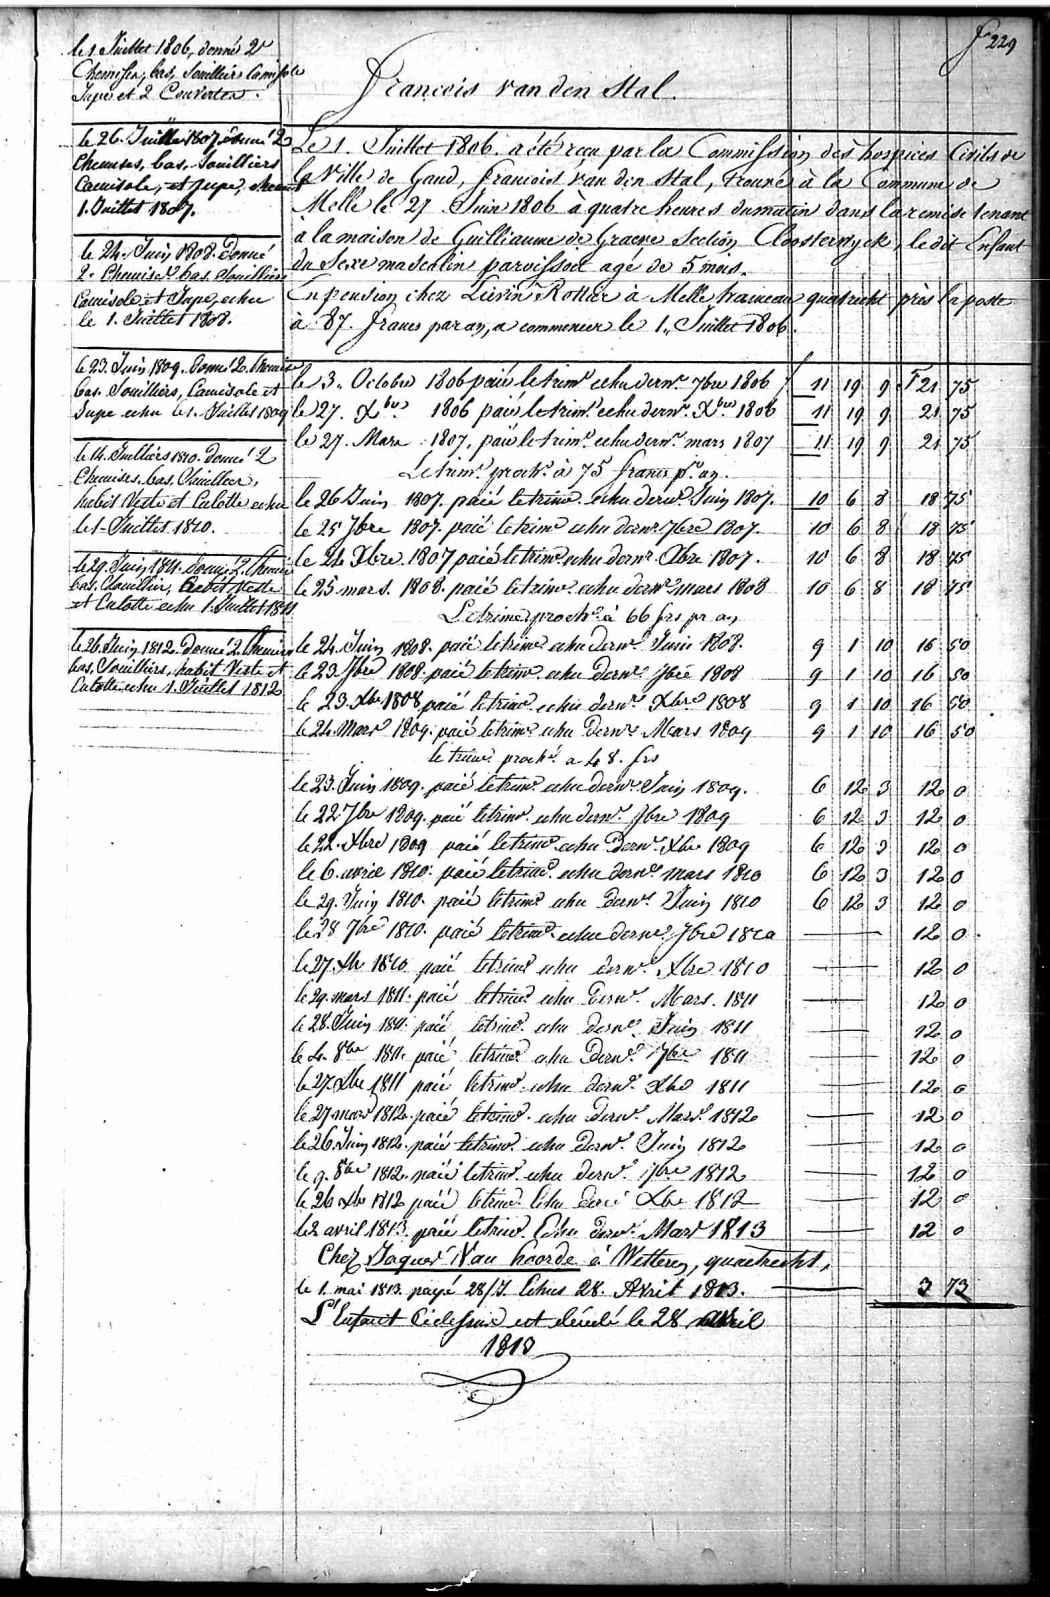 fº 229
François van den Stal.
le 1 Juillet 1806, donné 2
Chemises, bas, Souillier Camisole
Jupe et 2 Couvertes.
le 26. Juillet 1807 donné 2
Chemises, bas, Souilliers
Camisole, et Jupe, echeant
1. Juillet 1807.
le 24. Juin 1808 Donné
2. Chemises bas Souilliers
Camisole et Jupe, echu
le 1. Juillet 1808.
le 23. Juin 1809. Donné 2. Chemises
bas. Souilliers, Camisole et
Jupe echu le 1. Juillet 1809
le 14. Juilliers 1810. donné 2
Chemises. bas. Souillier,
habit Veste et Culotte echu
le 1. Juillet 1810.
le 29. Juin 1811. donné 2. Chemises
bas. Souillier, habit Veste
et Culotte echu 1. Juillet 1811
le 26. Juin 1812. donné 2. Chemises
bas. Souilliers, habit Veste et
Culotte echu 1. Juillet 1812
Le 1. Juillet 1806. a été reçu par la Commission des hospices Civils de
la Ville de Gand, François van den Stal, trouvé à la Commune de
Melle le 27 Juin 1806 à quatre heures du matin dans la remise tenant
à la maison de Guilliaume de Graeve Section Cloosterwyck, le dit Enfant
du Sexe masculin paroissoit agé de 5 mois.
En pension chez Lievin Rottier à Melle hameau quatrecht près la poste
à 87. francs par an, a commencer le 1. Juillet 1806.
le 3. Octobre 1806 paié le trimr. echu dernr. 7bre 1806 11 19 9 F 21 75
le 27. Xbre 1806 paié le trimr. echu dernr. Xbre 1806 11 19 9 21 75
le 27. Mars 1807, paié le trimr. echu dernr. mars 1807 11 19 9 21 75
Le trimr. prochr. à 75 francs pr. an.
le 26 Juin 1807. paié le trimr. echu dernr. Juin 1807. 10 6 8 18 75
le 25 7bre 1807. paié le trimr echu dernr. 7bre 1807. 10 6 8 18 75
le 24 Xbre. 1807 paié le trimr. echu dernr. Xbre 1807. 10 6 8 18 75
le 25 mars. 1808. paié le trimr. echu dernr. mars 1808 10 6 8 18 75
Le trimr. prochr. à 66 frs pr an
le 24 Juin 1808. paié le trimr. echu dernr. Juin 1808. 9 1 10 16 50
le 23 7bre 1808. paié le trimr. echu dernr. 7bre 1808 9 1 10 16 50
le 23. Xbre 1808 paié le trimr. echu dernr. Xbre 1808 9 1 10 16 50
le 24. Mars 1809. paié le trimr. echu dernr. Mars 1809 9 1 10 16 50
le trimr. prochr. a 48. frs
le 23. Juin 1809. paié le trimr. echu dernr. Juin 1809. 6 12 3 12 0
le 22 7bre 1809. paié le trimr. echu dernr. 7bre 1809 6 12 3 12 0
le 22. Xbre 1809 paié le trimr. echu dernr. Xbre 1809 6 12 3 12 0
le 6. avril 1810. paié le trimr. echu dernr. mars 1810 6 12 3 12 0
le 29. Juin 1810. paié le trimr. echu dernr. Juin 1810 6 12 3 12 0
le 28 7bre 1810. paié le trimr. echu dernr. 7bre 1810 12 0
le 27. Xbr 1810. paié le trimr. echu dernr. Xbre 1810 12 0
le 29. mars 1811. paié le trimr. echu dernr. Mars. 1811 12 0
le 28. Juin 1811. paié le trimr. echu dernr. Juin 1811 12 0
le 4. 8bre 1811. paié le trimr. echu dernr. 7bre 1811 12 0
le 27 Xbre 1811 paié le trimr. echu dernr. Xbre 1811 12 0
le 27 mars 1812. paié le trimr. echu dernr. Mars. 1812 12 0
le 26. Juin 1812. paié le trimr. echu dernr. Juin 1812 12 0
le 9. 8bre 1812. paié le trimr. echu dernr. 7bre 1812 12 0
le 26 Xbr 1812 paié le trimr Echu Xbre 1812 12 0
le 2 avril 1813. paié le trimr. Echu dernr. Mars 1813 12 0
Chez Jaques Van hoorde à Wetteren, quatrecht,
le 1. mai 1813. payé 28/J. Echus 28. Avril 1813. 3 73
L'Enfant Cidessus est décédé le 28 avril
1813